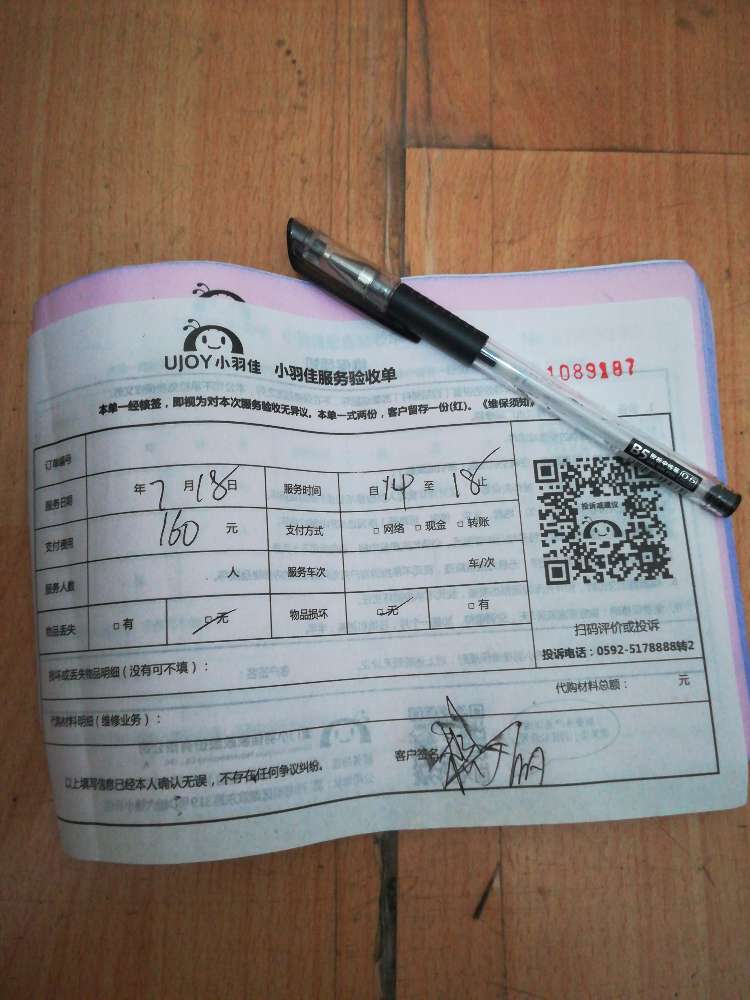 UJOY小羽佳 小羽佳服务验收单
1089187
本单一经核签，即视为对本次服务验收无异议。本单一式两份，客户留存一份(红)。《维保须知
订单编号
服务日期 年 7 月 18 日 服务时间 自 14 至 18 止
支付费用 160 元 支付方式 □ 网络 □ 现金 □ 转账
服务人数 人 服务车次 车/次
物品丢失 □ 有 □ 无 物品损坏 □ 无 □ 有
投诉或建议
扫码评价或投诉
投诉电话：0592-5178888转2
损坏或丢失物品明细（没有可不填）：
代购材料明细（维修业务）： 代购材料总额： 元
以上填写信息已经本人确认无误，不存在任何争议纠纷。 客户签名
B5